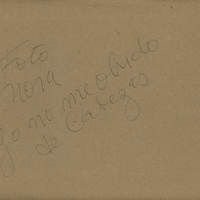 Foto
Nora
yo no me olvido
de Cabezas